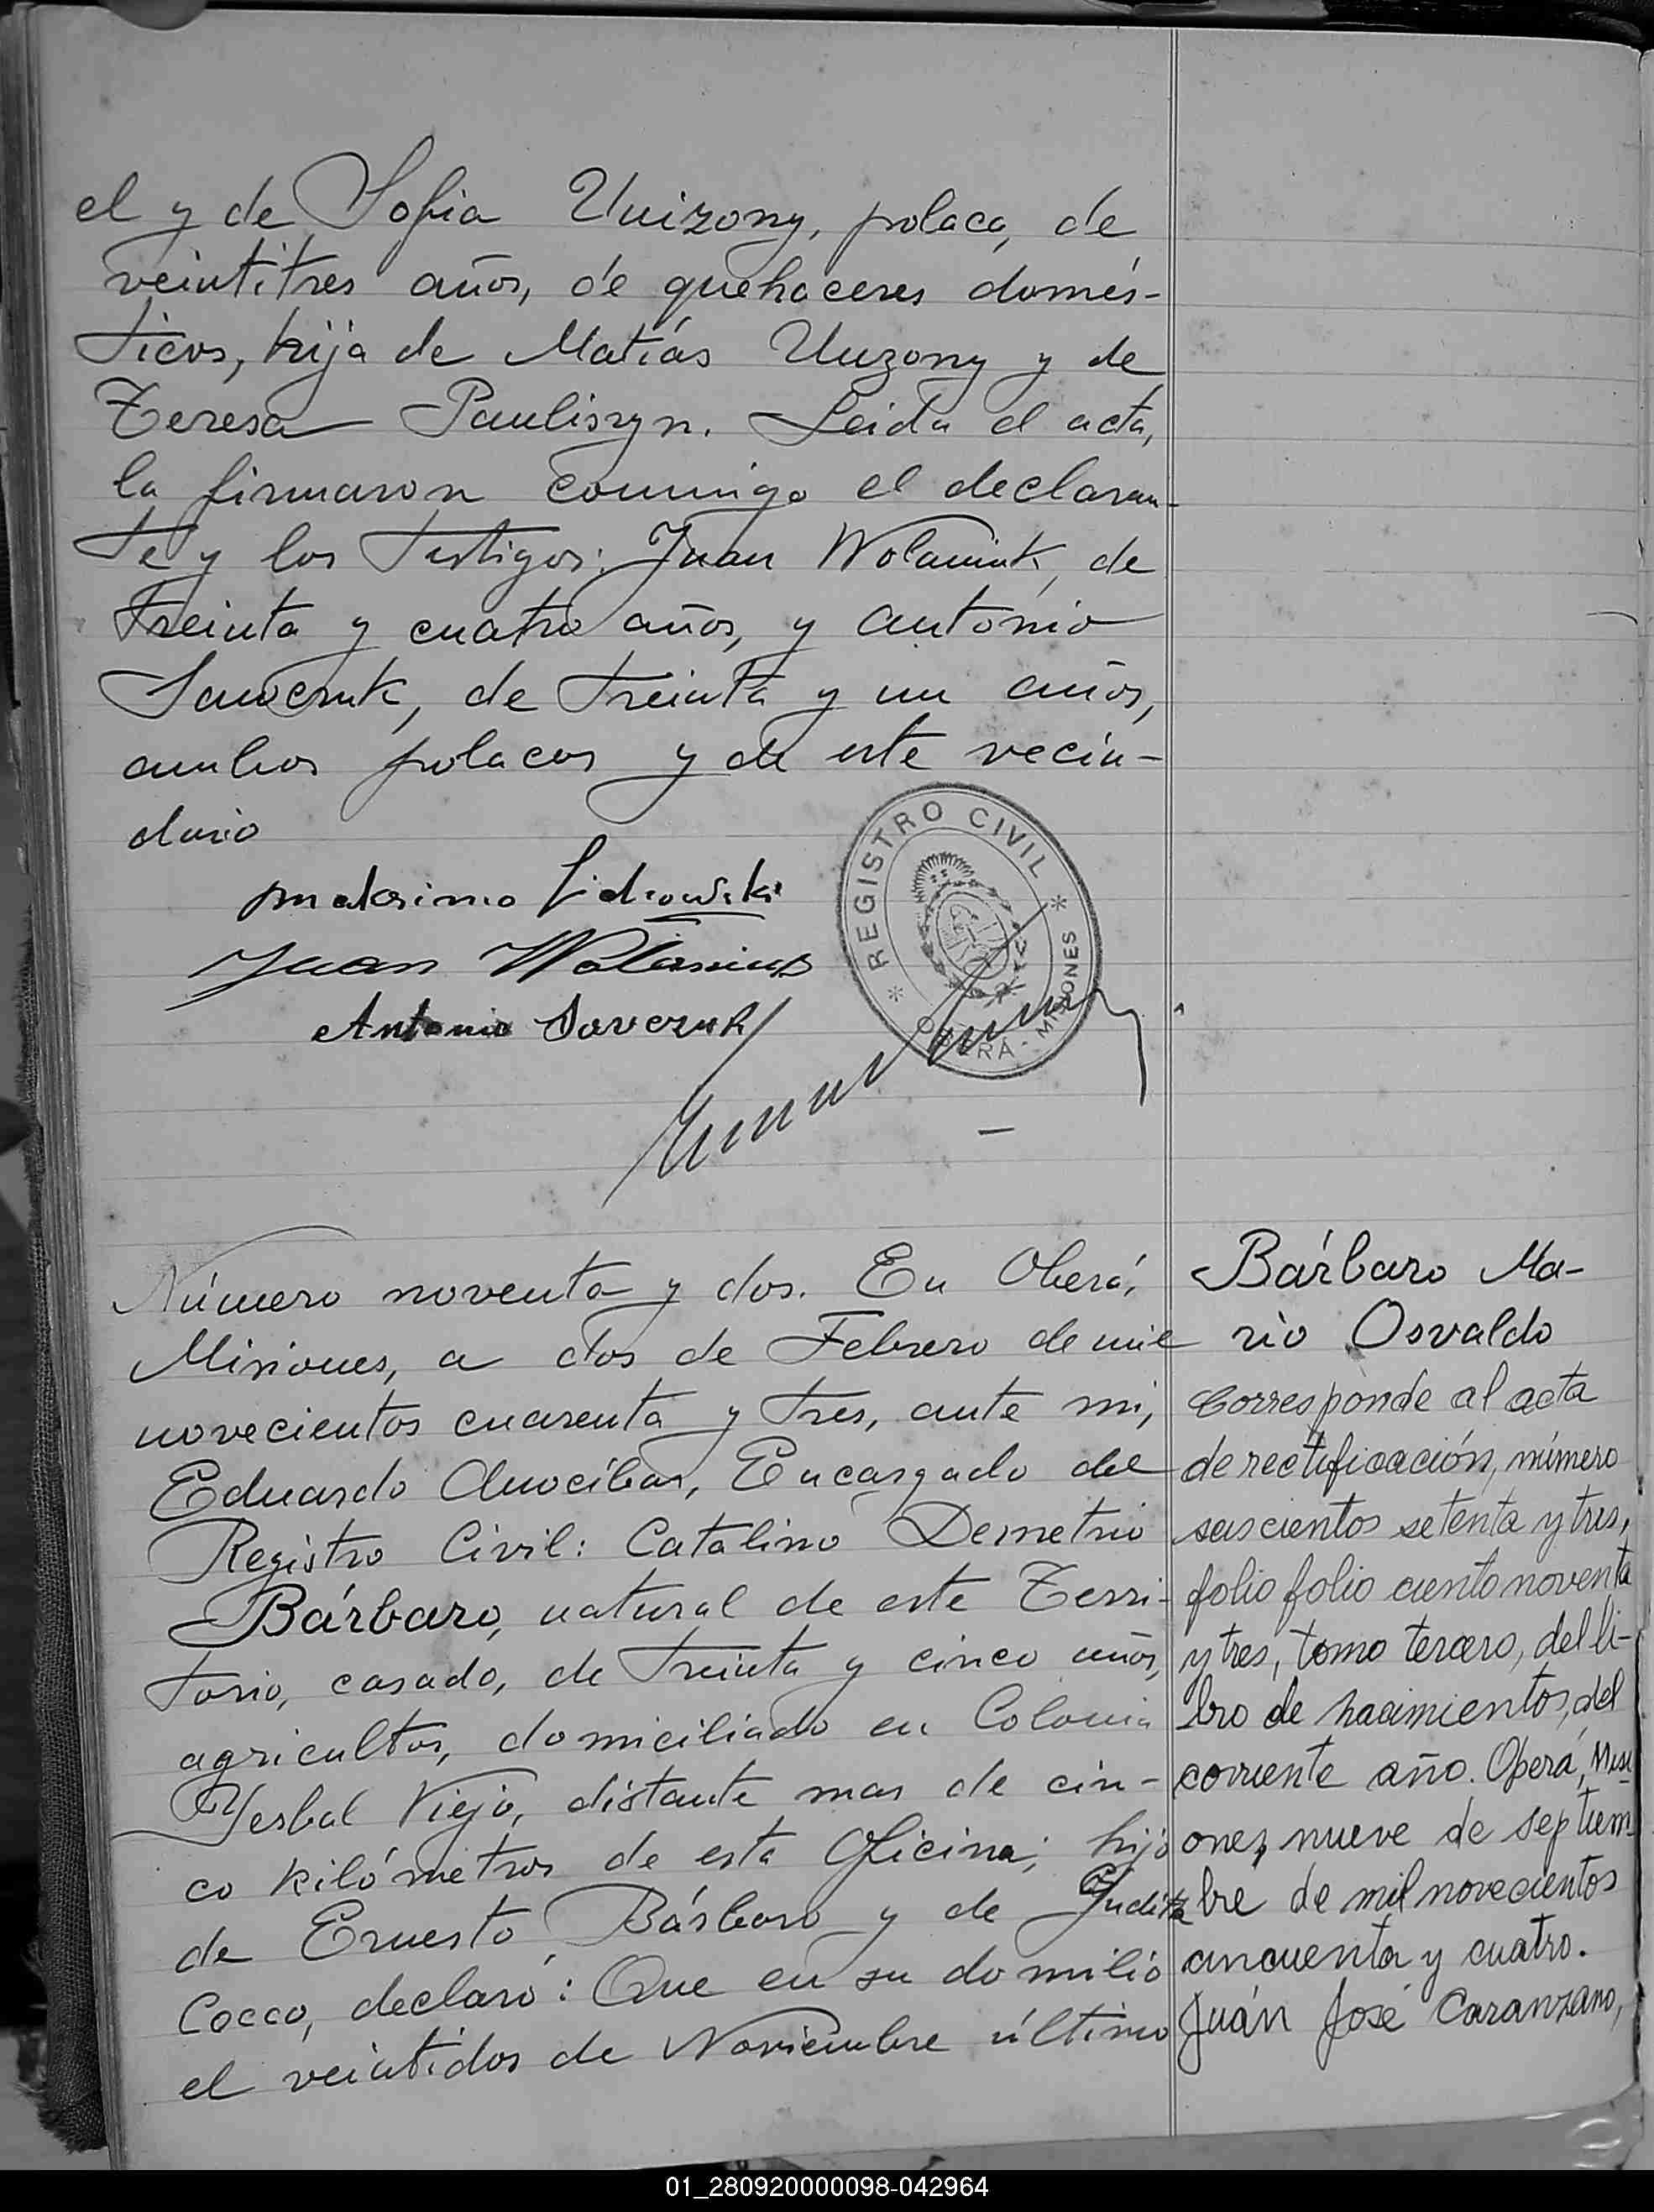 el y de Sofia Unizony, polaca, de
veintitres años, de quehaceres domés-
ticos, hija de Matías Unizony y de
Teresa Pauliszyn. Leida el acta,
la firmaron conmigo el declaran-
te y los testigos: Juan Wolaniuk, de
treinta y cuatro años, y Antonio
Sawczuk, de treinta y un años,
ambos polacos y de este vecin-
dario
Juan
Antonio Savczuk
REGISTRO CIVIL
OBERÁ - MISIONES
Número noventa y dos. En Oberá,
Misiones, a dos de Febrero de mil
novecientos cuarenta y tres, ante mi,
Eduardo Anocíbar, Encargado del
Registro Civil: Catalino Demetrio
Bárbaro, natural de este Terri-
torio, casado, de treinta y cinco años,
agricultor, domiciliado en Colonia
Yerbal Viejo, distante mas de cin-
co kilómetros de esta Oficina; hijo
de Ernesto Bárbaro y de Judith
Cocco, declaró: Que en su domilio
el veintidos de Noviembre último
Bárbaro Ma-
rio Osvaldo
Corresponde al acta
de rectificación, número
seiscientos setenta y tres,
folio folio ciento noventa
y tres, tomo tercero, del li-
bro de nacimientos, del
corriente año. Oberá, Misi-
ones, nueve de septiem-
bre de mil novecientos
cincuenta y cuatro.
Juán José Caranzano,
01_280920000098-042964